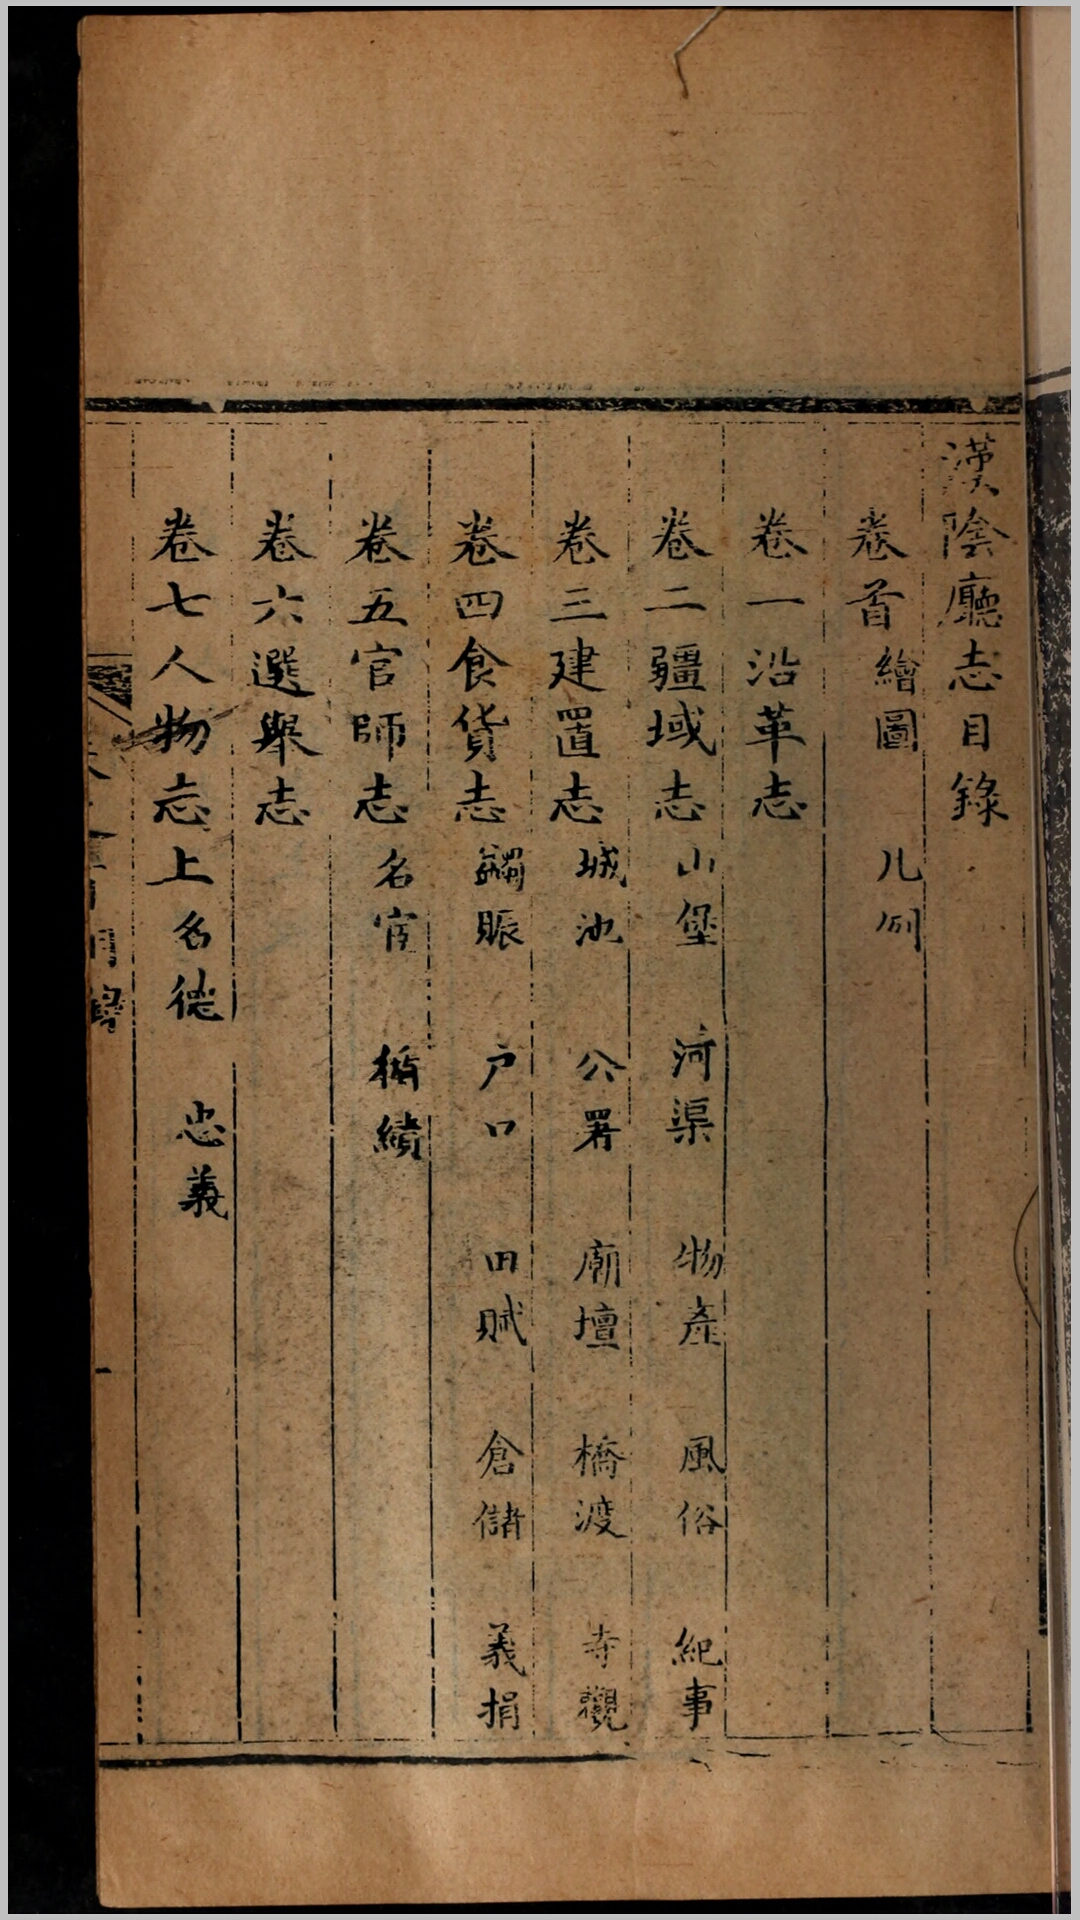 漢陰廳志目錄
卷首繪圖 凡例
卷一沿革志
卷二疆域志 山堡 河渠 物產 風俗 紀事
卷三建置志 城池 公署 廟壇 橋渡 寺觀
卷四食貨志 蠲賑 户口 田賦 倉儲 義捐
卷五官師志 名宦 循績
卷六選舉志
卷七人物志上名德 忠義